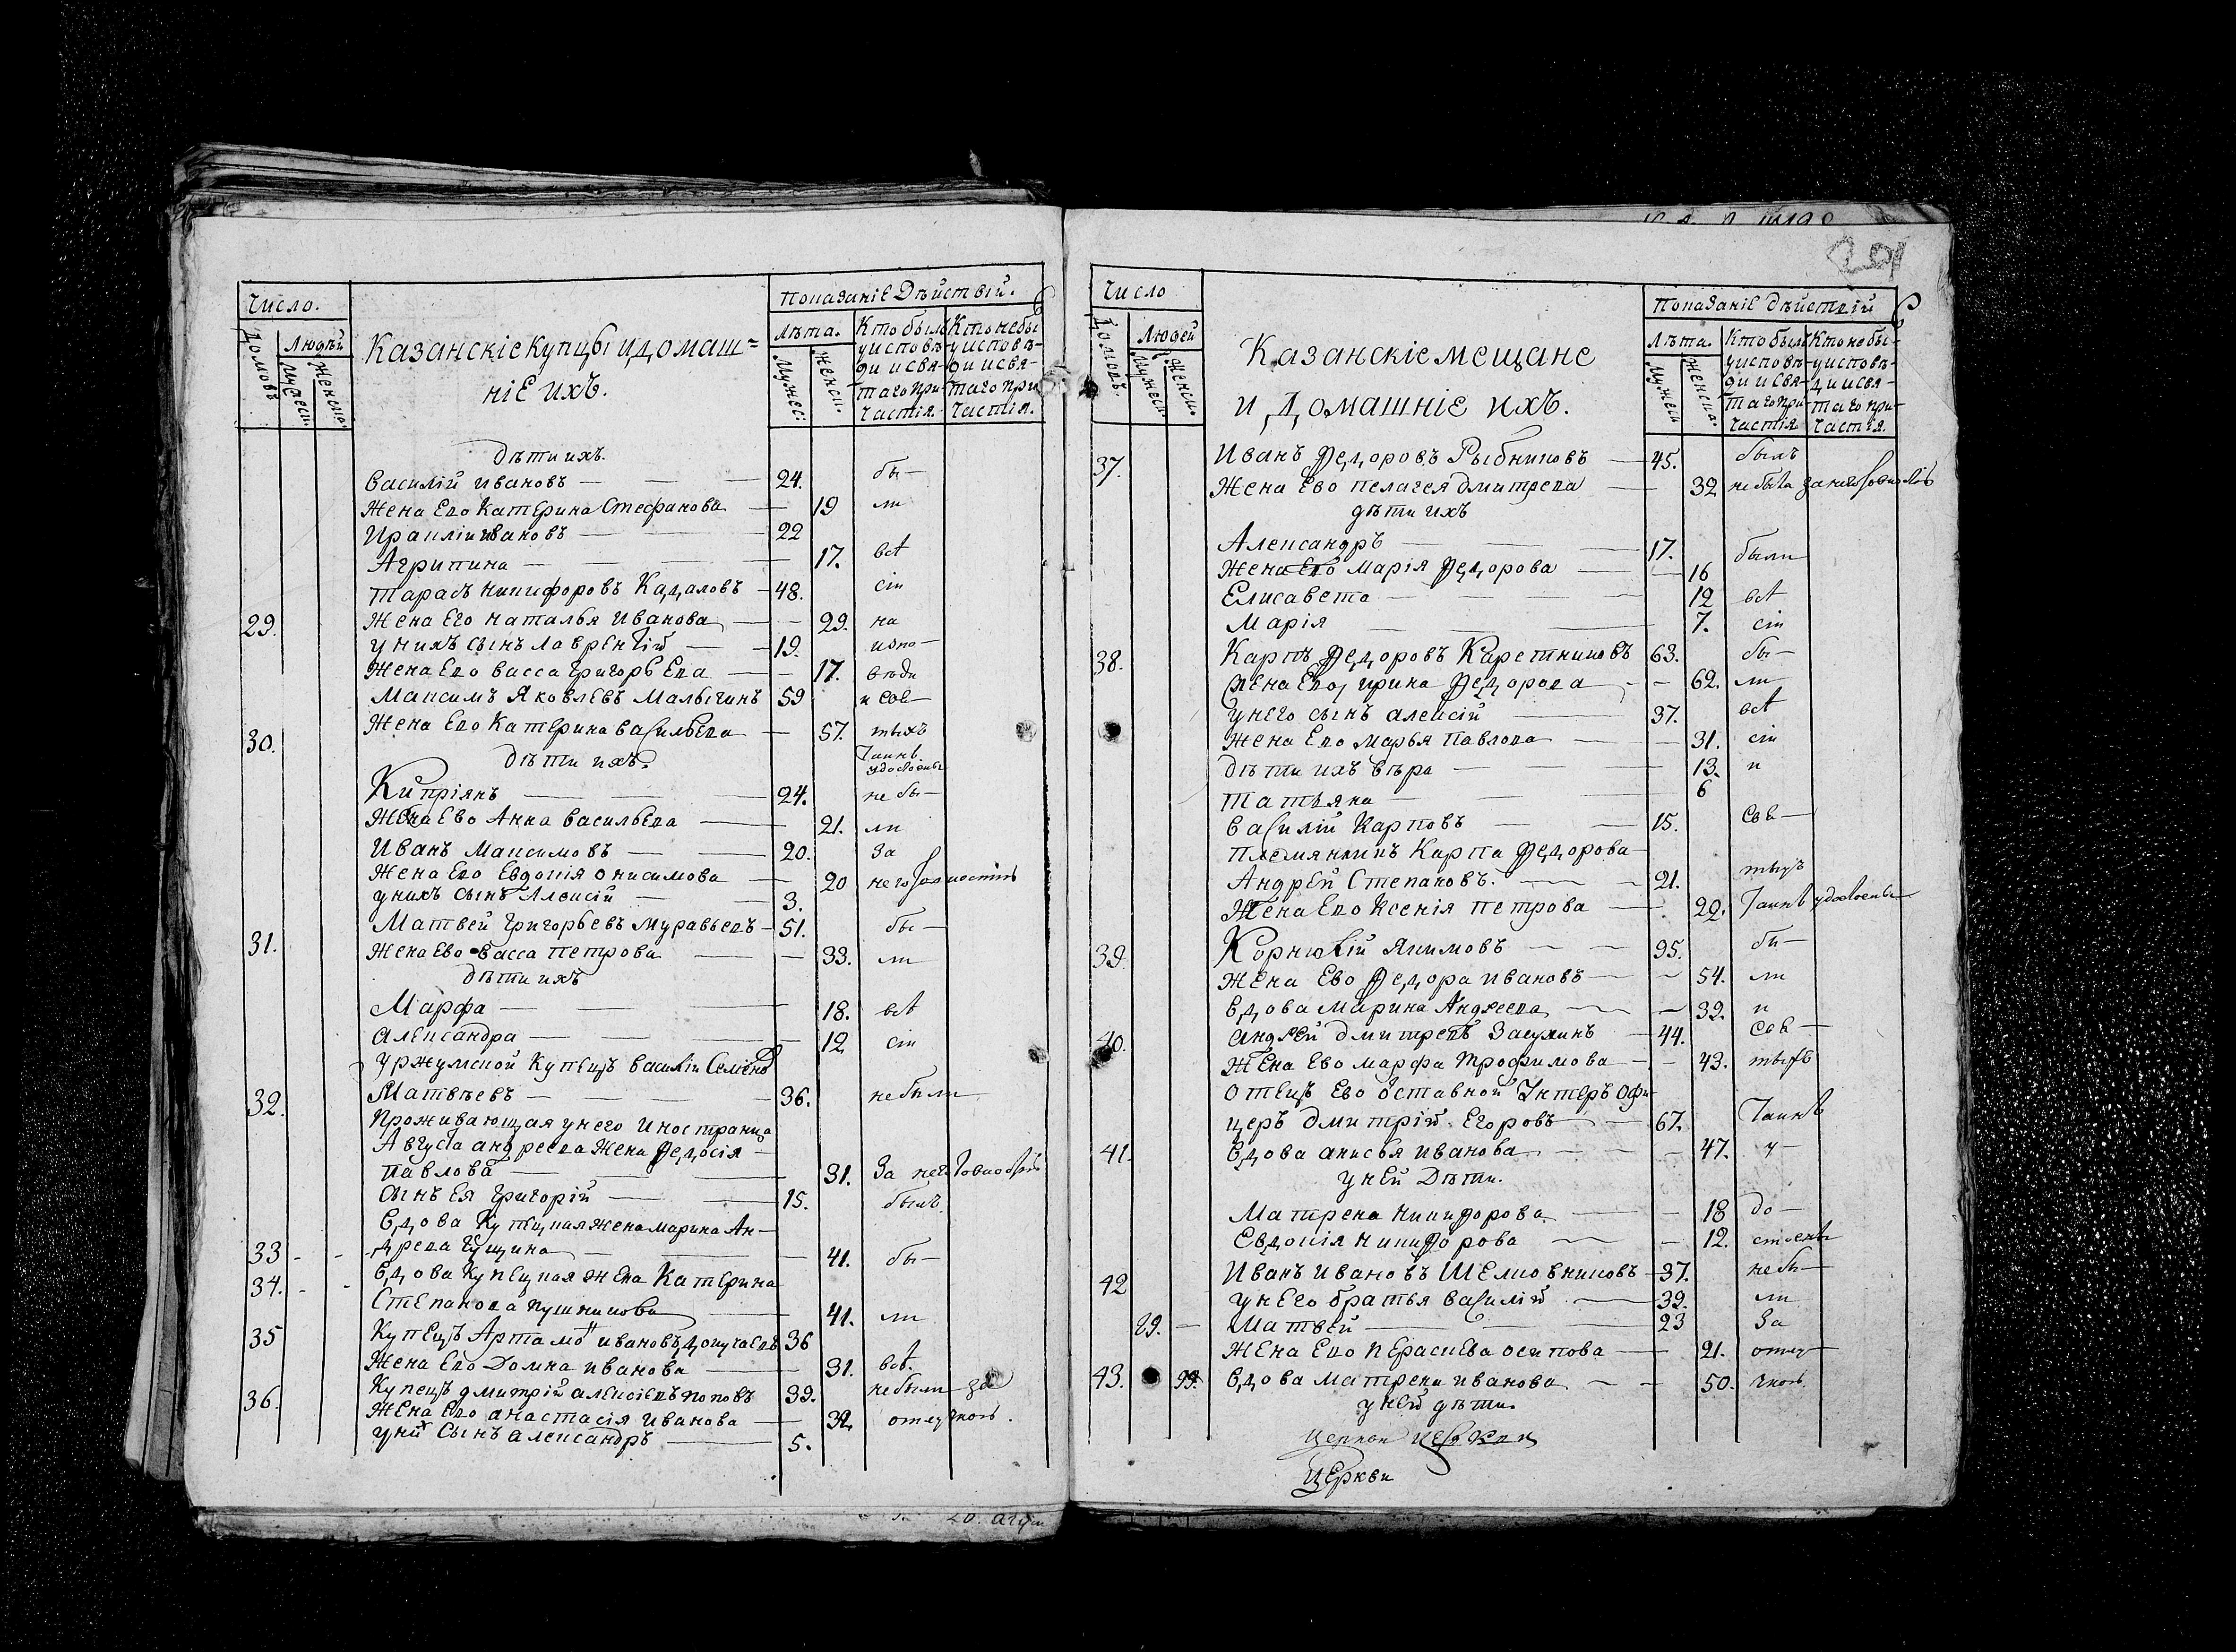 Число.
Домовъ
Людѣй
Мужеск:
Женска.
Казанскіе купцы и домаш=
ніе ихъ.
Показаніе Дѣйствій.
Лѣта.
Мужес:
Женск.
Кто былъ
у исповѣ-
ди и свя-
таго при-
частія.
Кто не бы
у исповѣ-
ди и свя-
таго при
частія.
дѣти ихъ.
Василій Ивановъ — 24. бы-
Жена Ево Катерина Стефанова — 19 ли
Ираклій Ивановъ — 22
Агрипина — 17. всѣ
Тарасъ Никифоровъ Кадаловъ 48. сіи
29. Жена Его Наталья Иванова — 29. на
у нихъ сынъ Лаврентій — 19. испо-
Жена Ево Васса Григорьева — 17. вѣди
Максимъ Яковлевъ Малыгинъ 59 и свя-
30. Жена Ево Катерина Васильева — 57. тыхъ
дѣти ихъ. Таинъ
удостоены
Кипріянъ — 24. не бы-
Жена Ево Анна Васильева — 21. ли
Иванъ Максимовъ — 20. за
Жена Ево Евдокія Онисимова — 20 неготовностію
у нихъ сынъ Алексій — 3.
31. Матвей Григорьевъ Муравьевъ 51. бы-
Жена Ево Васса Петрова — 33. ли
дѣти ихъ
Марфа — 18. всѣ
Александра — 12 сіи
Уржумской купецъ Василій Семено
32. Матвѣевъ — 36. не были
Проживающая у него Иностранца
Августа Андреева Жена Федосія
Павлова — 31. за неготовностію
Сынъ Ея Григорій — 15. былъ.
Вдова Купецкая жена Марина Ан-
33 - - дреева Гущина — 41. бы-
34. - - Вдова Купецкая жена Катерина
Степанова Пушникова — 41. ли
35 Купецъ Артамонъ Ивановъ 36
Жена Ево Домна Иванова — 31. всѣ.
36. Купецъ Дмитрій Алексіевъ Поповъ 39. не были за
Жена Ево Анастасія Иванова — 32 отлучкою.
у них Сынъ Александръ — 5.
201
Число
Домовъ.
Людей
Мужеск.
Женск.
Казанскіе мещане
и домашніе ихъ.
Показаніе дѣйствій
Лѣта.
Мужеск
Женска.
Кто былъ
у исповѣ-
ди и свя-
таго при-
частія
Кто не бы-
у исповѣ-
ди и свя-
таго при-
частія.
37. Иванъ Федоровъ Рыбниковъ — 45. былъ
Жена Ево Пелагея Дмитрева — 32 не была за неготовностію
дѣти ихъ
Александръ — 17.
Жена Ево Марія Федорова — 16 были
Елисавета — 12 всѣ
Марія — 7. сіи
38. Карпъ Федоровъ Каретниковъ 63. бы-
Жена Ево, Ирина Федорова — 62. ли
у него сынъ Алексій — 37. всѣ
Жена Ево Марья Павлова — 31. сіи
дѣти ихъ Вѣра — 13. и
Татьяна — 6
Василій Карповъ — 15. свя-
Племянникъ Карпа Федорова
Андрей Степановъ. — 21. тыхъ
Жена Ево Ксенія Петрова — 22. Таинъ удостоены
39. Корнилій Якимовъ — 95. бы-
Жена Ево Федора Ивановъ — 54. ли
Вдова Марина Андреева — 32. и
40. Андрей Дмитревъ — 44. свя-
Жена Ево Марфа Трофимова — 43. тыхъ
Отецъ Ево Отставной Унтеръ Офи-
церъ Дмитрій Егоровъ — 67. Таинъ
41. Вдова Анисья Иванова — 47. у-
у ней Дѣти.
Матрена Никифорова — 18 до-
Евдокія Никифорова — 12. стоены
42 Иванъ Ивановъ Шелковниковъ 37. не бы-
у него братья Василій — 32. ли
29. — Матвей — 23 за
Жена Ево Перасиева Осипова — 21. отлу-
43. 33. Вдова Матрена Иванова — 50. чкою.
у ней дѣти.
Церкви